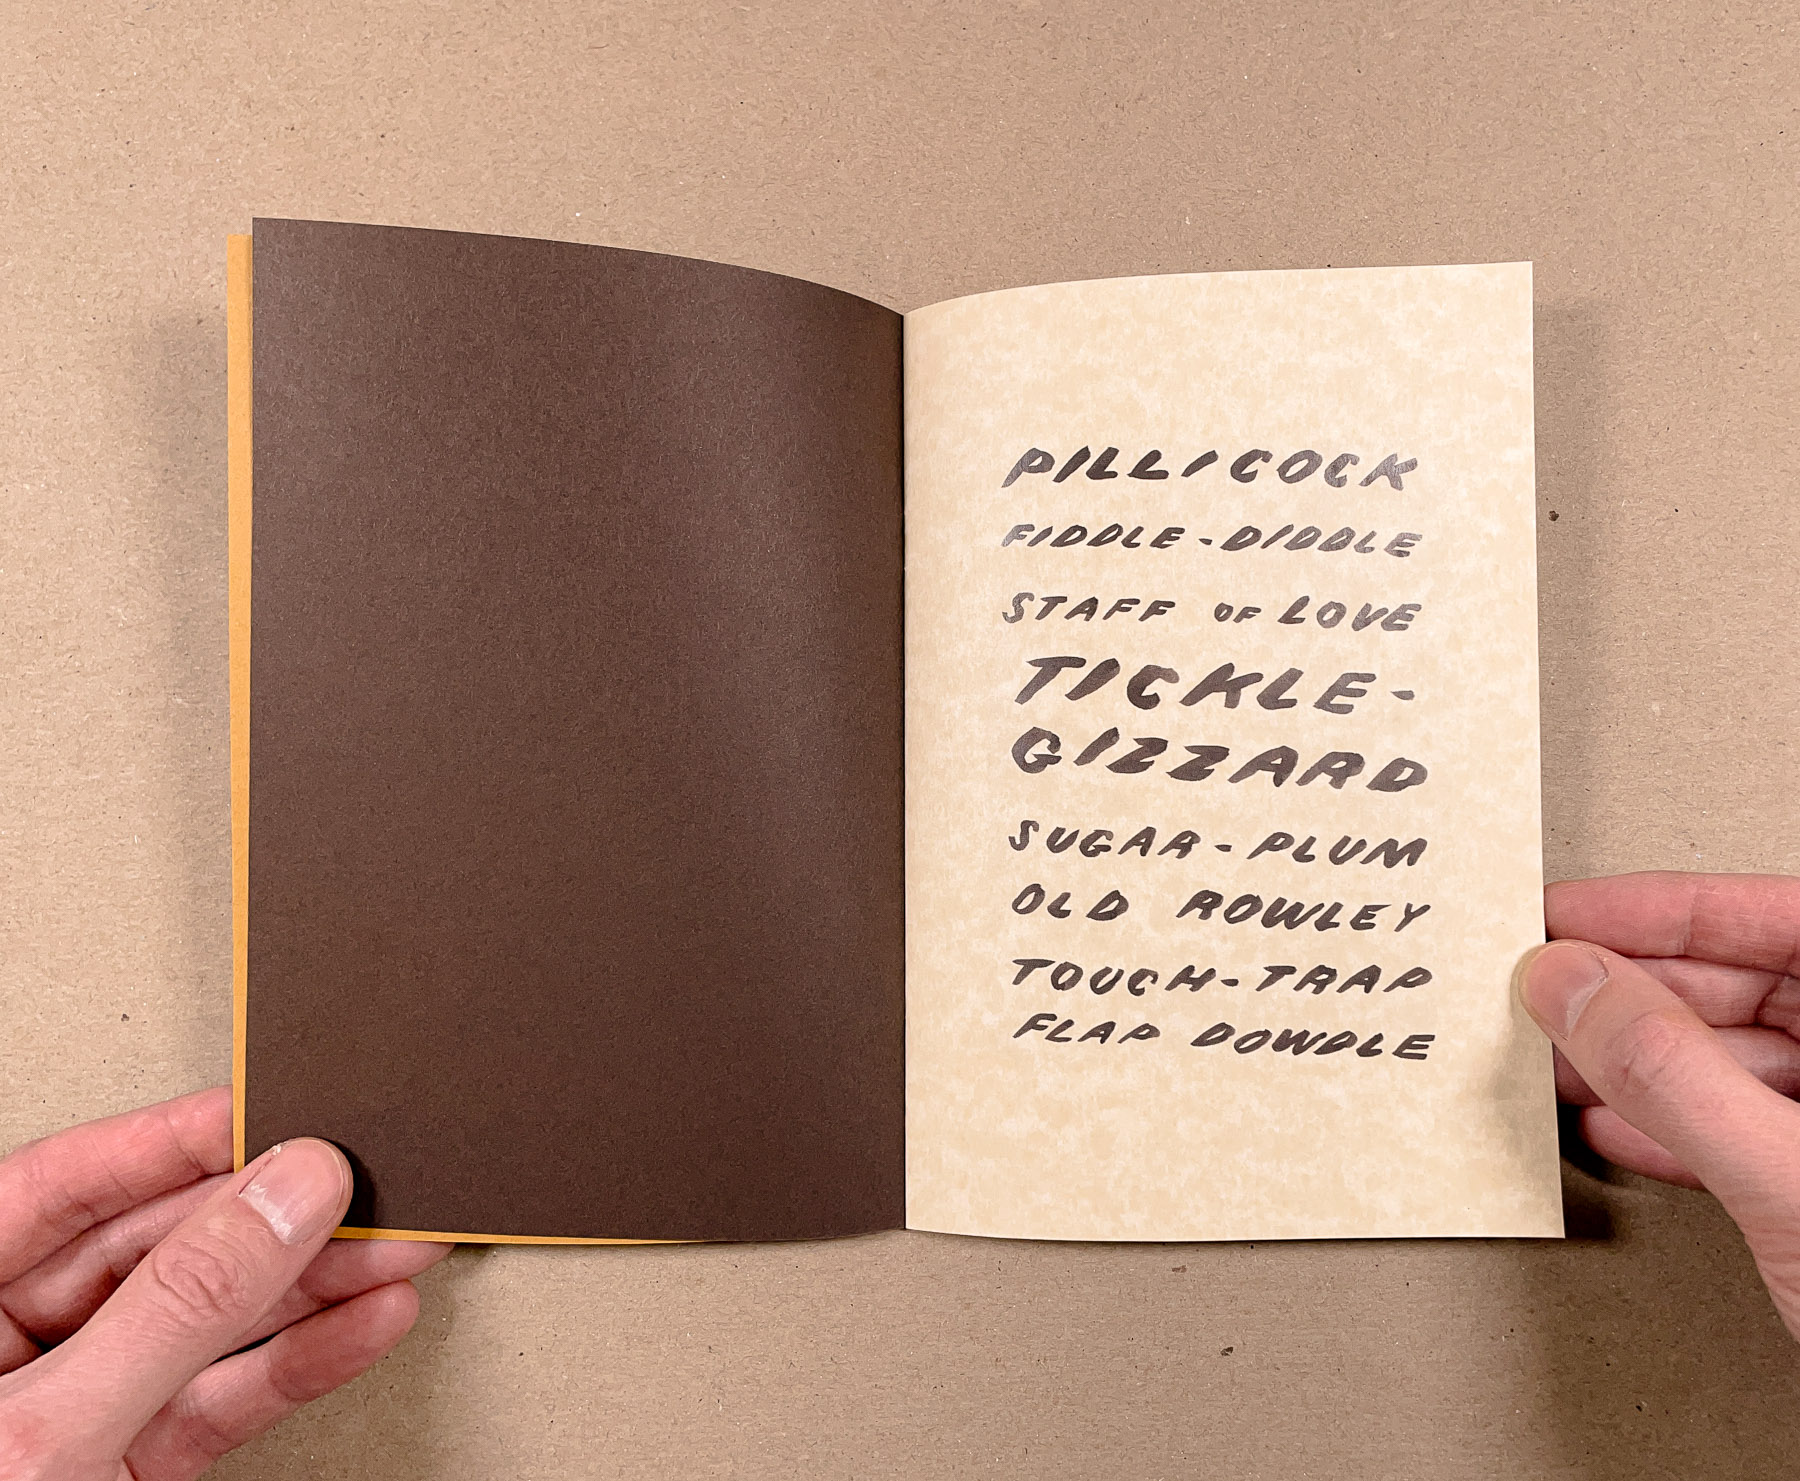 PILLICOCK
FIDDLE-DIDDLE
STAFF OF LOVE
TICKLE-
GIZZARD
SUGAR-PLUM
OLD ROWLEY
TOUCH-TRAP
FLAP DOWDLE